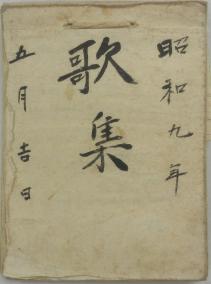 昭和九年
歌集
五月吉日